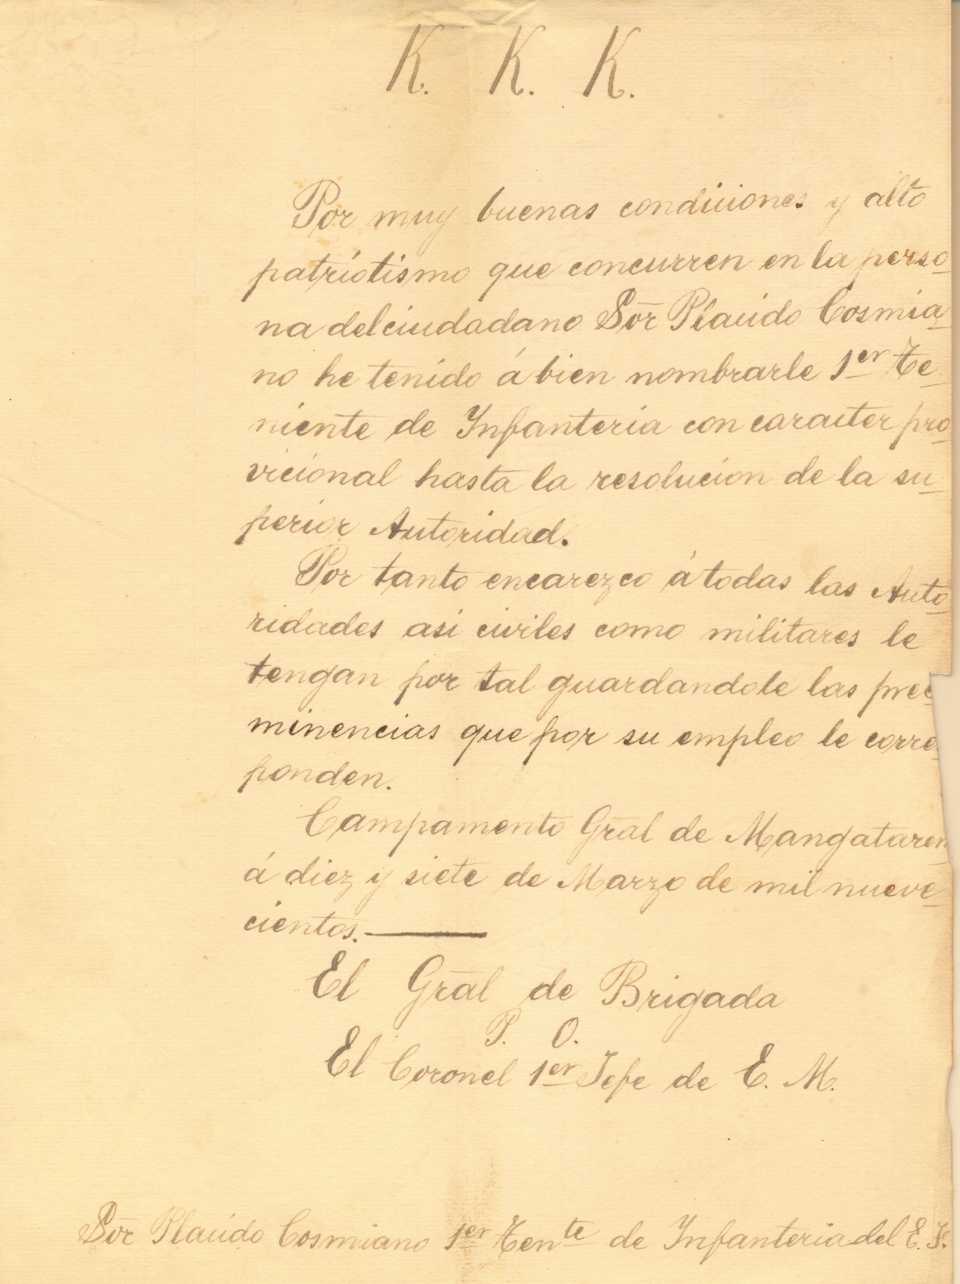 K. K. K.
Por muy buenas condiciones y alto
patriotismo que concurren en la perso-
na del ciudadano Sōr Placido Cosmia-
no he tenido á bien nombrarle 1er Te-
niente de Infanteria con caracter pro-
vicional hasta la resolucion de la su-
perior Autoridad.
Por tanto encarezco á todas las Auto-
ridades asi civiles como militares le
tengan por tal guardandole las pree
minencias que por su empleo le corre
ponden.
Campamento Grāl de Mangataren
á diez y siete de Marzo de mil nueve-
cientos.
El Grāl de Brigada
P. O.
El Coronel 1er Jefe de E. M.
Sōr Placido Cosmiano 1er Tente de Infanteria del E. F.